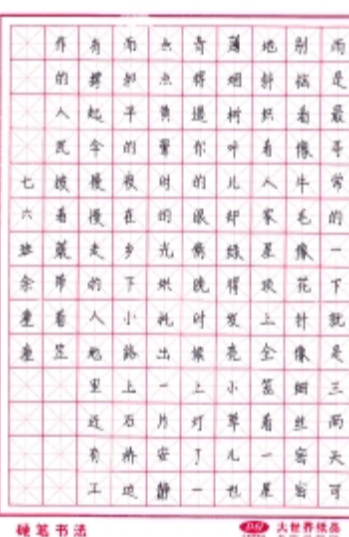 雨是最寻常的一下就是三两天可
别恼看像牛毛像花针像细丝密密
地斜织着人家屋顶上全笼着一层
薄烟树叶儿却绿得发亮小草儿也
青得逼你的眼傍晚时候上灯了一
点点黄晕时的光烘托出一片安静
而和平的夜在乡下小路上石桥边
有撑起伞慢慢走的人地里还有工
作的人民披着蓑带着笠
七六班余童童
硬笔书法
大世界纸品